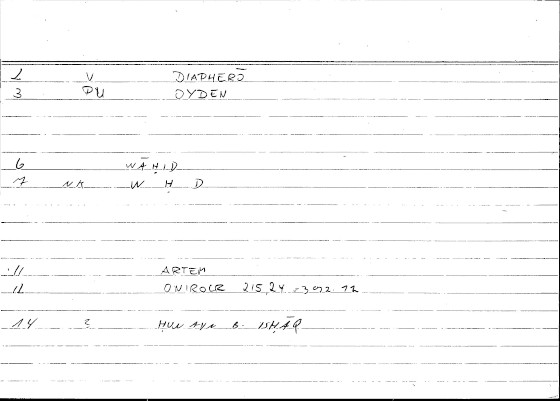 1 V DIAPHERŌ
3 PU OYDEN
6 WĀḤID
7 NK W Ḥ D
11 ARTEM
12 ONIROCR 215,24 = 392.12
14 2 ḤUNAYN B. ISḤĀQ